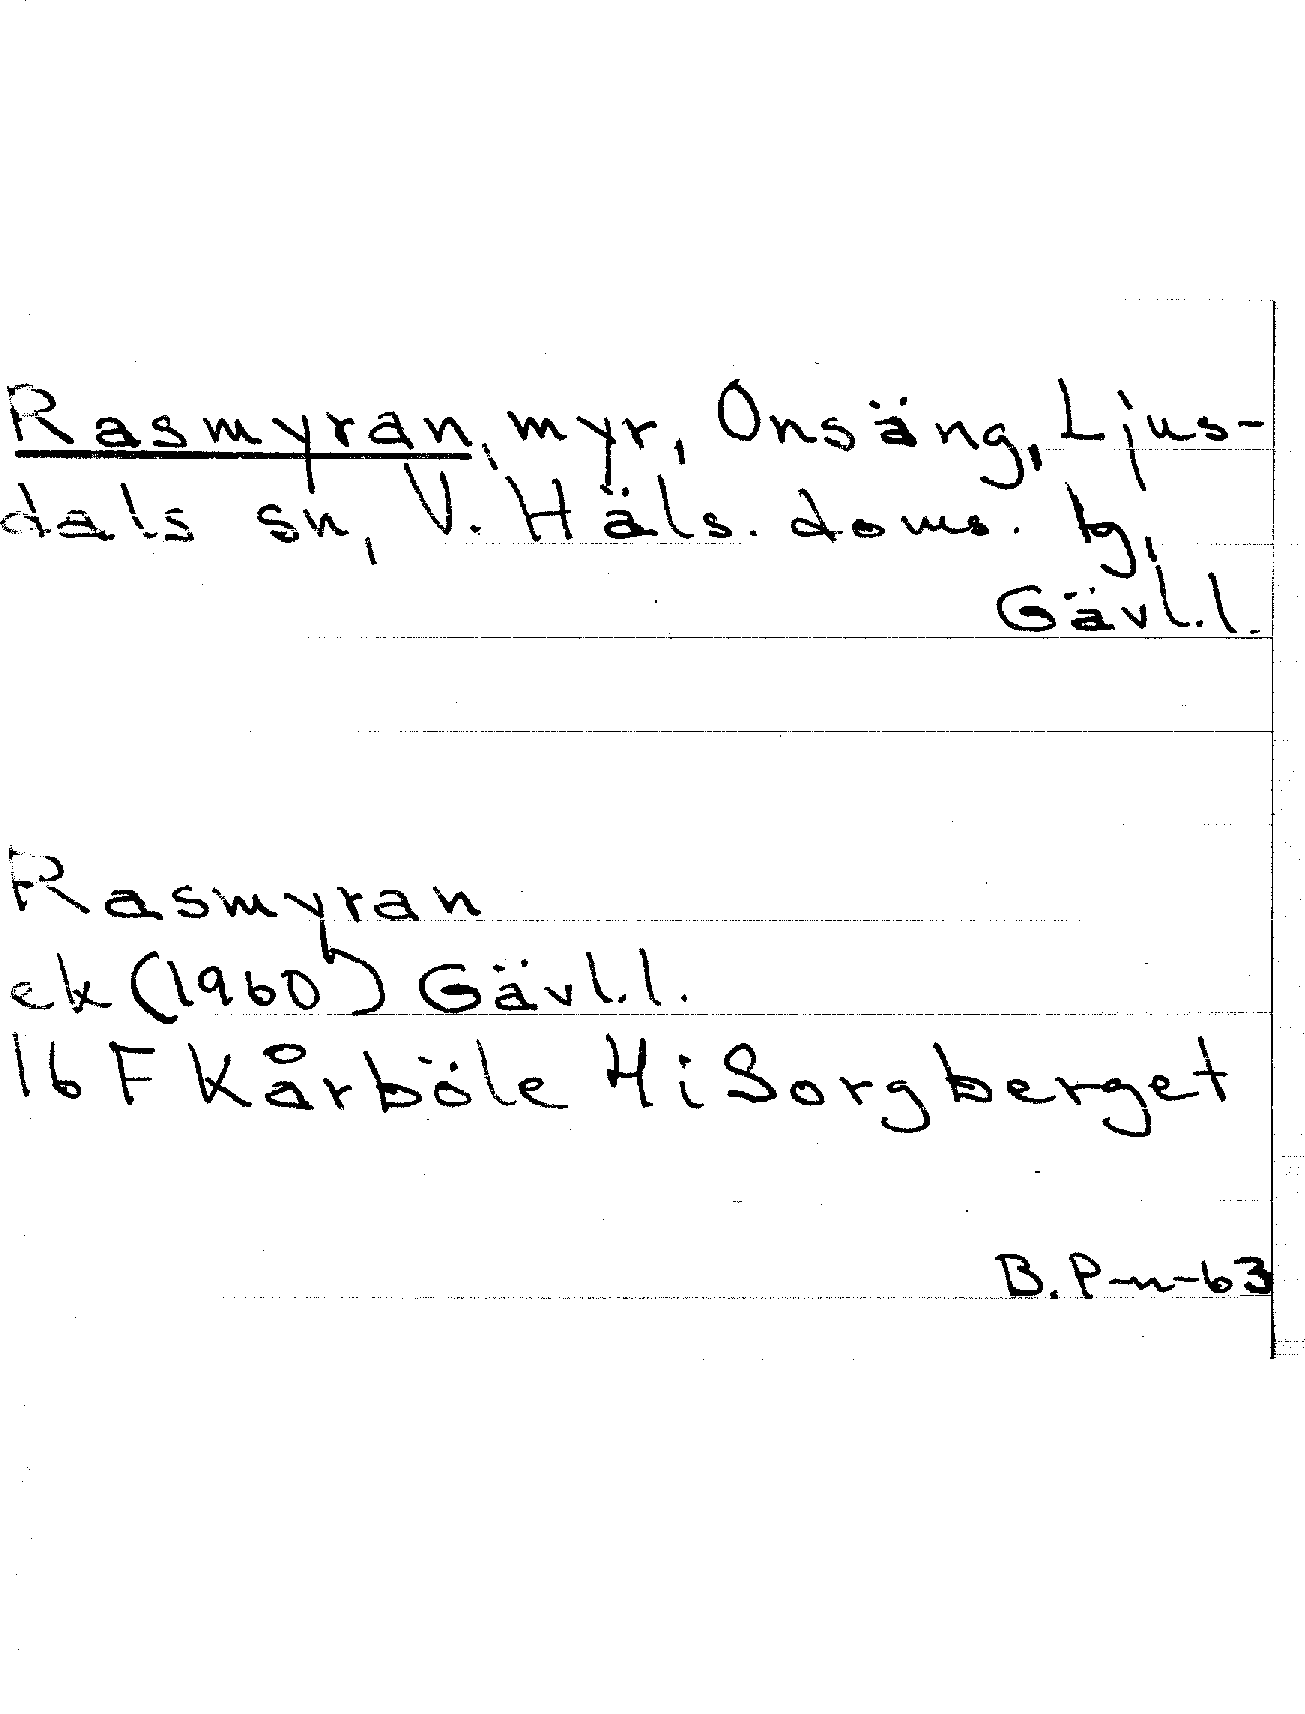 Rasmyran, myr, Onsäng, Ljus-
dals sn, V. Häls. doms. tg,
Gävl.l.
Rasmyran
ek (1960) Gävl.l.
16 F Kårböle 4i Sorgberget
B.P-n-63